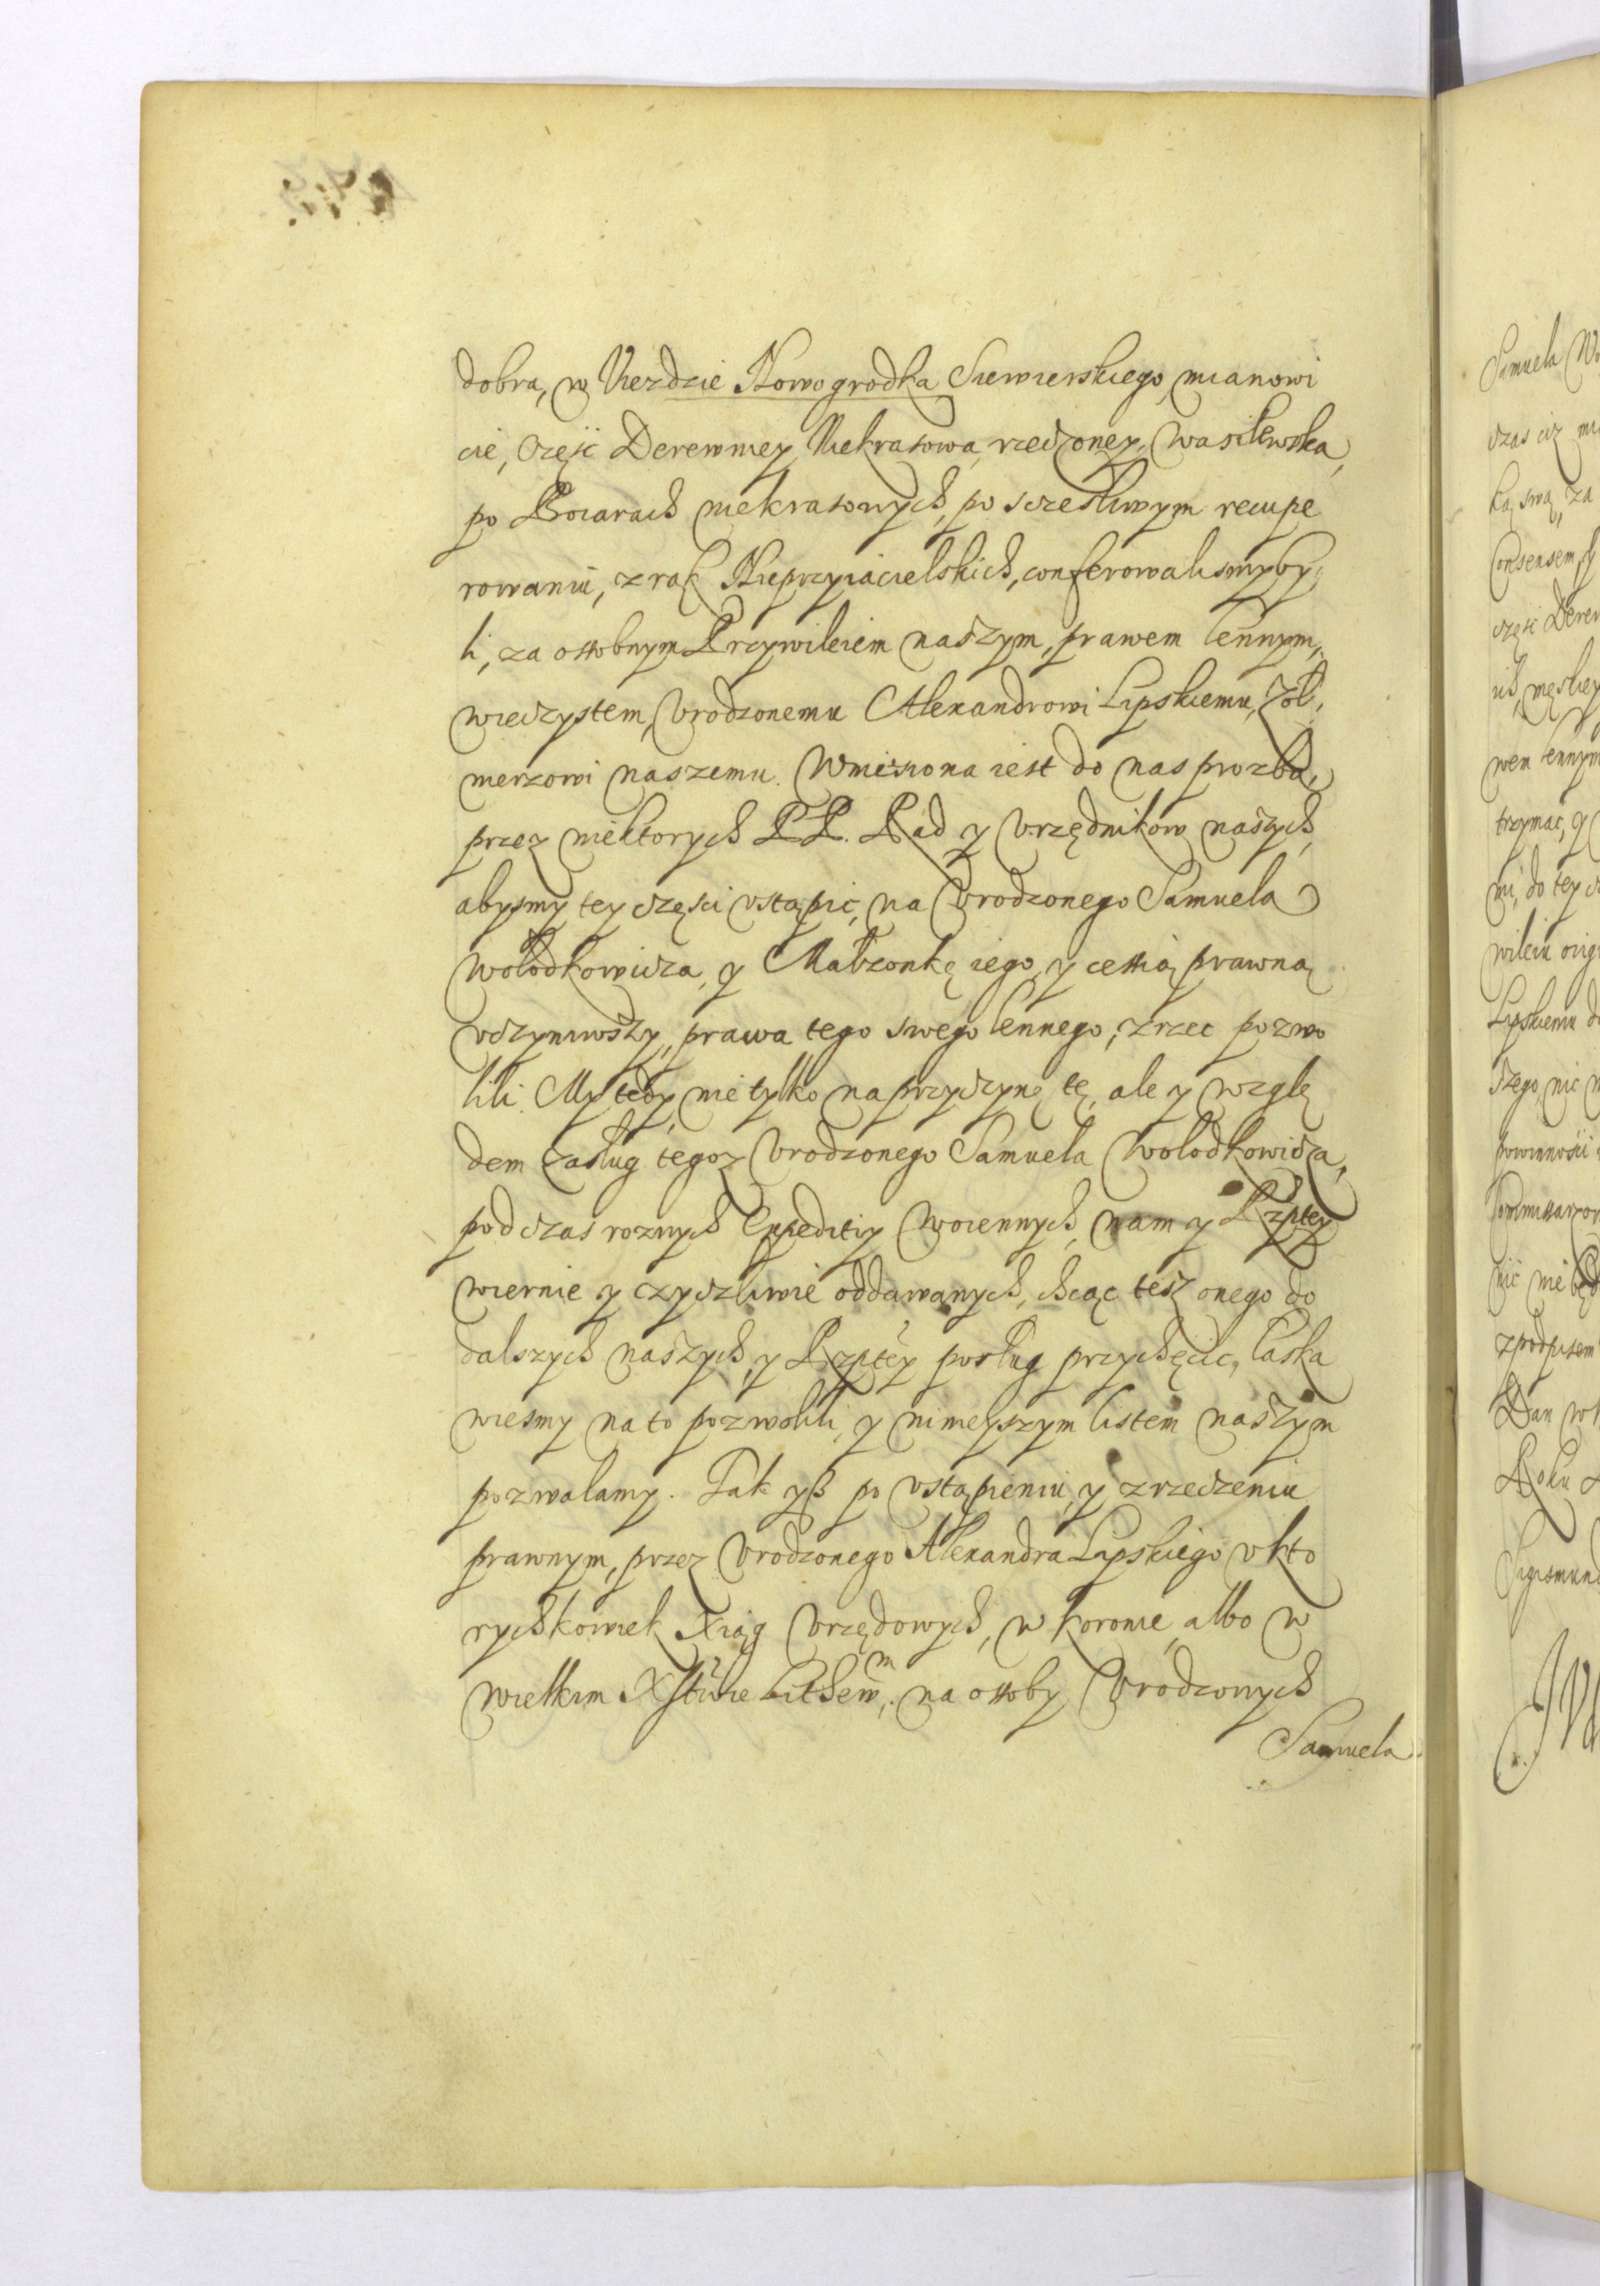 dobra, w Uiezdzie Nowogrodka Siewierskiego, mianowi
cie, Część Derewniey Niekrasowa, rzeczoney Wasilewska,
po Bociarach niekrasowych, po sczesliwym recupe
rowaniu, z rąk Nieprzyiacielskich, conferowalismy by
li, za ossobnym Przywileiem naszym, prawem lennym,
wieczystem, Vrodzonemu Alexandrowi Lipskiemu, Żoł,
nierzowi naszemu. Wniesiona iest do nas prozba,
przez niektorych PP. Rad y Vrzędnikow naszych,
abysmy tey części vstąpic, na Vrodzonego Samuela
Wołodkowicza, y Małżonkę iego, y cessią prawną
vczyniwszy, prawa tego swego lennego, zrzec pozwo
lili. My tedy, nie tylko na przyczynę tę, ale y wzglę
dem zasług tegoz Vrodzonego Samuela Wołodkowicza,
podczas roznych Expeditiy woiennych, nam y Rzptey
wiernie y czyczliwie oddawanych, chcąc tesz onego do
dalszych naszych, y Rzptey posług przychęcic, łaska
wiesmy na to pozwolili, y ninieyszym listem naszym
pozwalamy. Tak yß po vstąpieniu y zrzeczeniu
prawnym, przez Vrodzonego Alexandra Lipskiego v kto
rychkowiek Xiąg Vrzędowych, w Koronie, albo w
wielkim Xstwie Lithewm, na ossoby Vrodzonych
Samuela